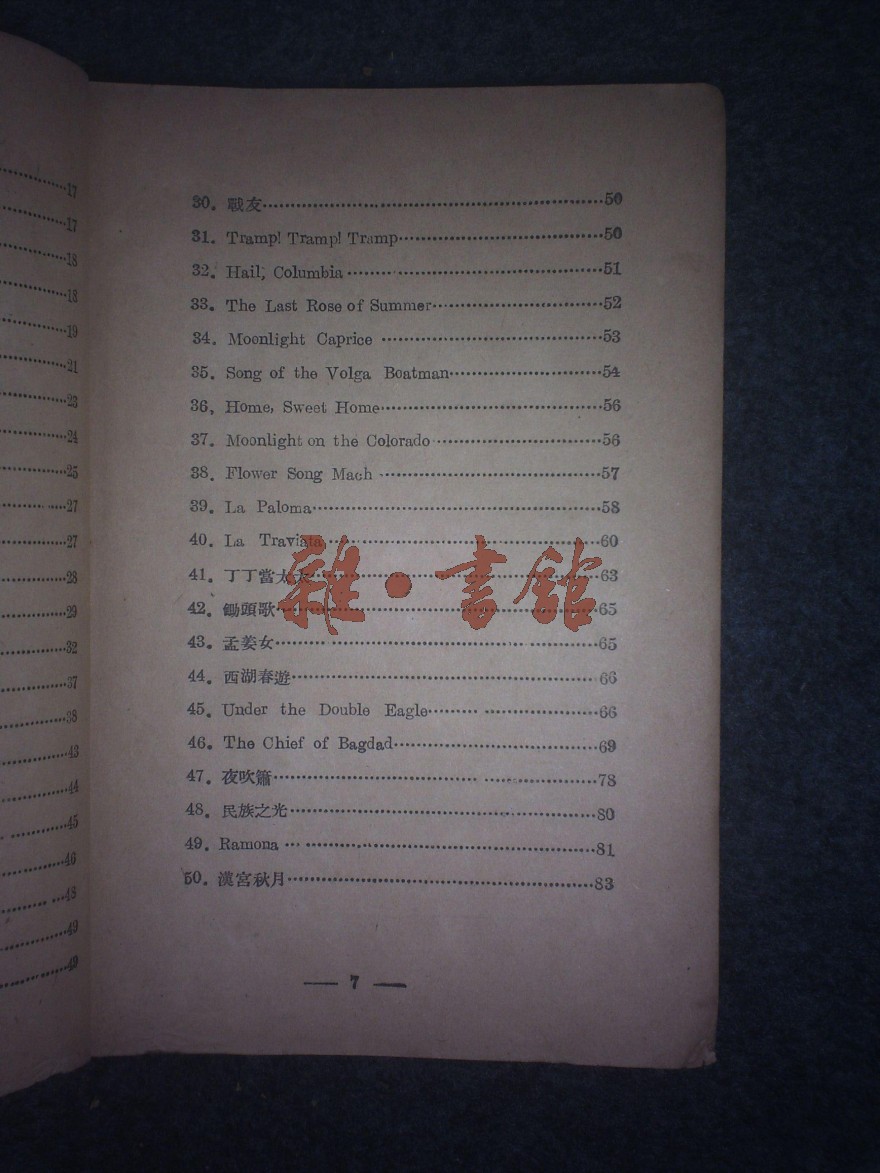 17
17
18
18
19
21
23
24
25
27
27
28
29
32
37
38
43
44
45
46
48
49
49
30. 戰友 50
31. Tramp! Tramp! Tramp 50
32. Hail, Columbia 51
33. The Last Rose of Summer 52
34. Moonlight Caprice 53
35. Song of the Volga Boatman 54
36, Home, Sweet Home 56
37. Moonlight on the Colorado 56
38. Flower Song Mach 57
39. La Paloma 58
40. La Traviata 60
41. 丁丁當太太 63
42. 鋤頭歌 65
43. 孟姜女 65
44. 西湖春遊 66
45. Under the Double Eagle 66
46. The Chief of Bagdad 69
47. 夜吹簫 78
48. 民族之光 80
49. Ramona 81
50. 漢宮秋月 83
雜·書館
— 7 —